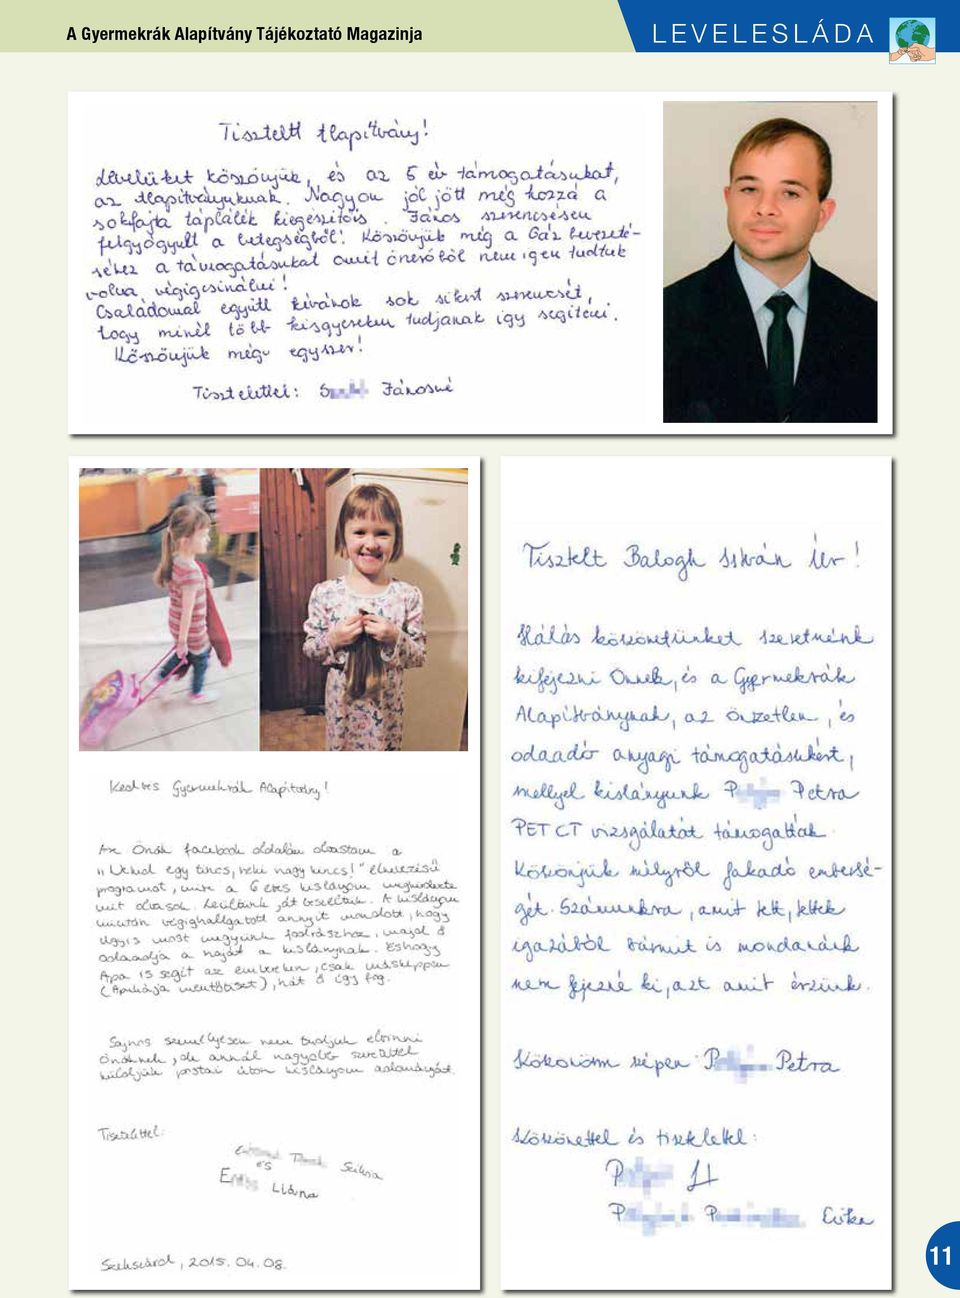 A Gyermekrák Alapítvány Tájékoztató Magazinja
LEVELESLÁDA
Tisztelt Alapítvány!
Levelüket köszönjük, és az 5 év támogatásukat,
az Alapítványuknak. Nagyon jól jött még hozzá a
sokfajta táplálék kiegészítőis. János szerencsésen
felgyógyult a betegségből! Köszönjük még a Gáz bevezeté-
séhez a támogatásukat amit önerőből nem igen tudtuk
volna végigcsinálni!
Családommal együtt kívánok sok sikert szerencsét,
hogy minél több kisgyereken tudjanak így segíteni.
Köszönjük mégegyszer!
Tisztelettel: Jánosné
Kedves Gyermekrák Alapítvány!
Az Önök facebook oldalán olvastam a
"Neked egy tincs, neki nagy kincs!" elnevezésű
programot, mire a 6 éves kislányom megkérdezte
mit olvasok. Leültünk, át beszéltük. A kislányom
miután végighallgatott annyit mondott, hogy
úgyis most megyünk fodrászhoz, majd ő
odaadja a haját a kislánynak. És hogy
Apa is segít az embereken, csak másképpen
(Apukája mentőtiszt), hát ő így fog.
Sajnos személyesen nem tudjuk elvinni
Önöknek, de annál nagyobb szeretettel
küldjük postai úton kislányom adományát.
Tisztelettel:
és Szilvia
Liána
Szekszárd, 2015. 04. 08.
Tisztelt Balogh István Úr!
Hálás köszönetünket szeretnénk
kifejezni Önnek, és a Gyermekrák
Alapítványnak, az önzetlen, és
odaadó anyagi támogatásukért,
mellyel kislányunk P Petra
PET CT vizsgálatát támogatták.
Köszönjük mélyről fakadó embersé-
gét. Számunkra, amit tett, tettek
igazából bármit is mondanánk
nem fejezné ki, azt amit érzünk.
Kölcsönm képen P Petra
Köszönettel és tisztelettel:
P
P P Erika
11